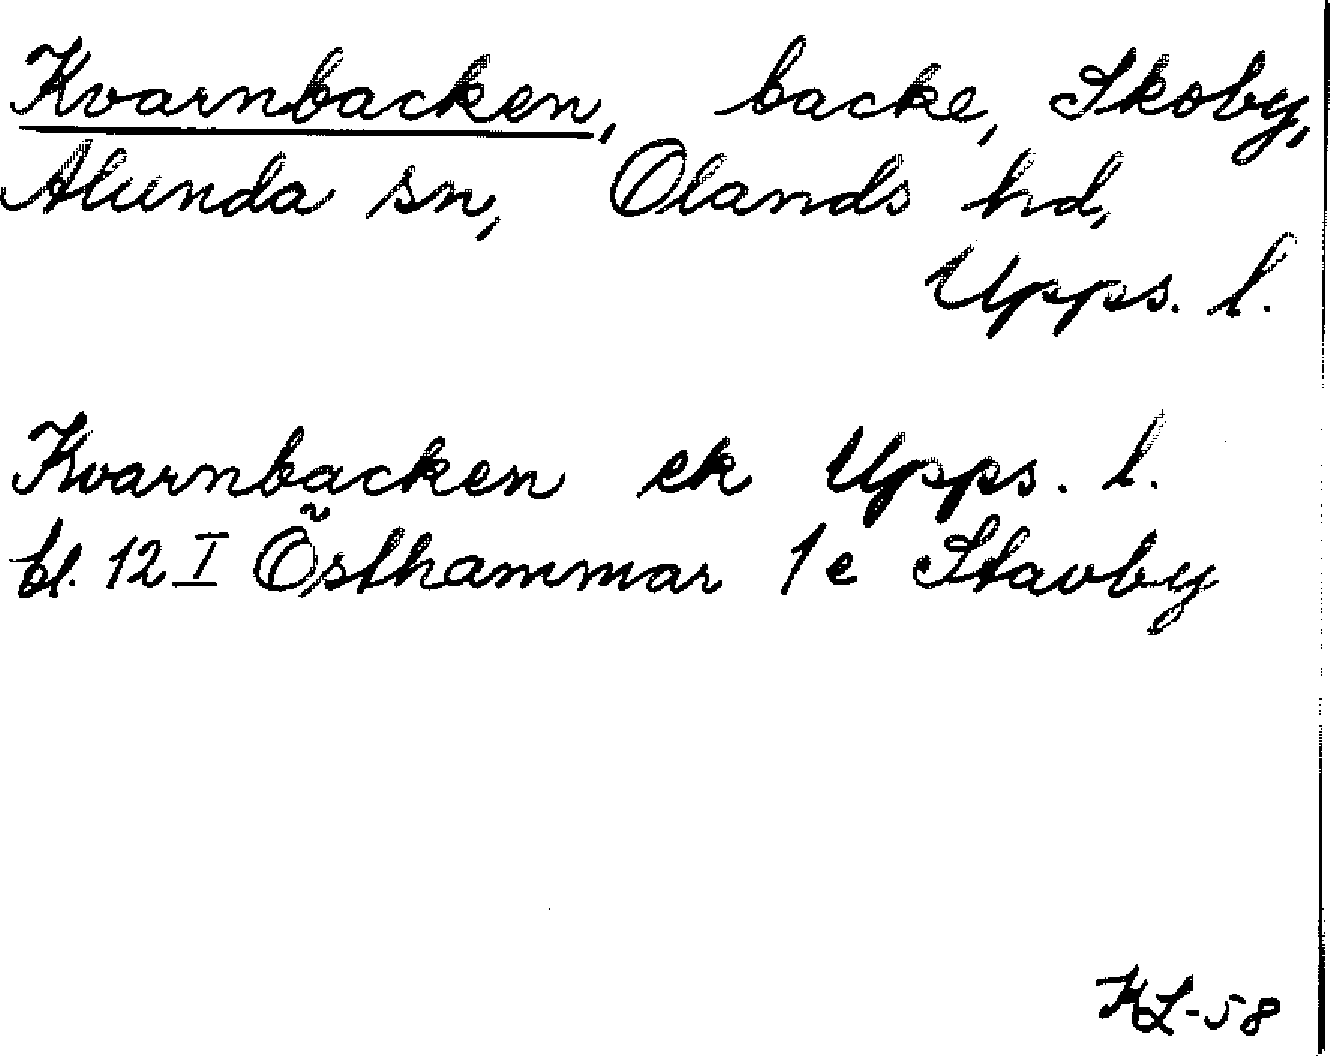 Kvarnbacken, backe, Skoby,
Alunda sn, Olands hd,
Upps. l.
Kvarnbacken ek Upps. l.
bl. 12 I Östhammar 1e Stavby
KL-58